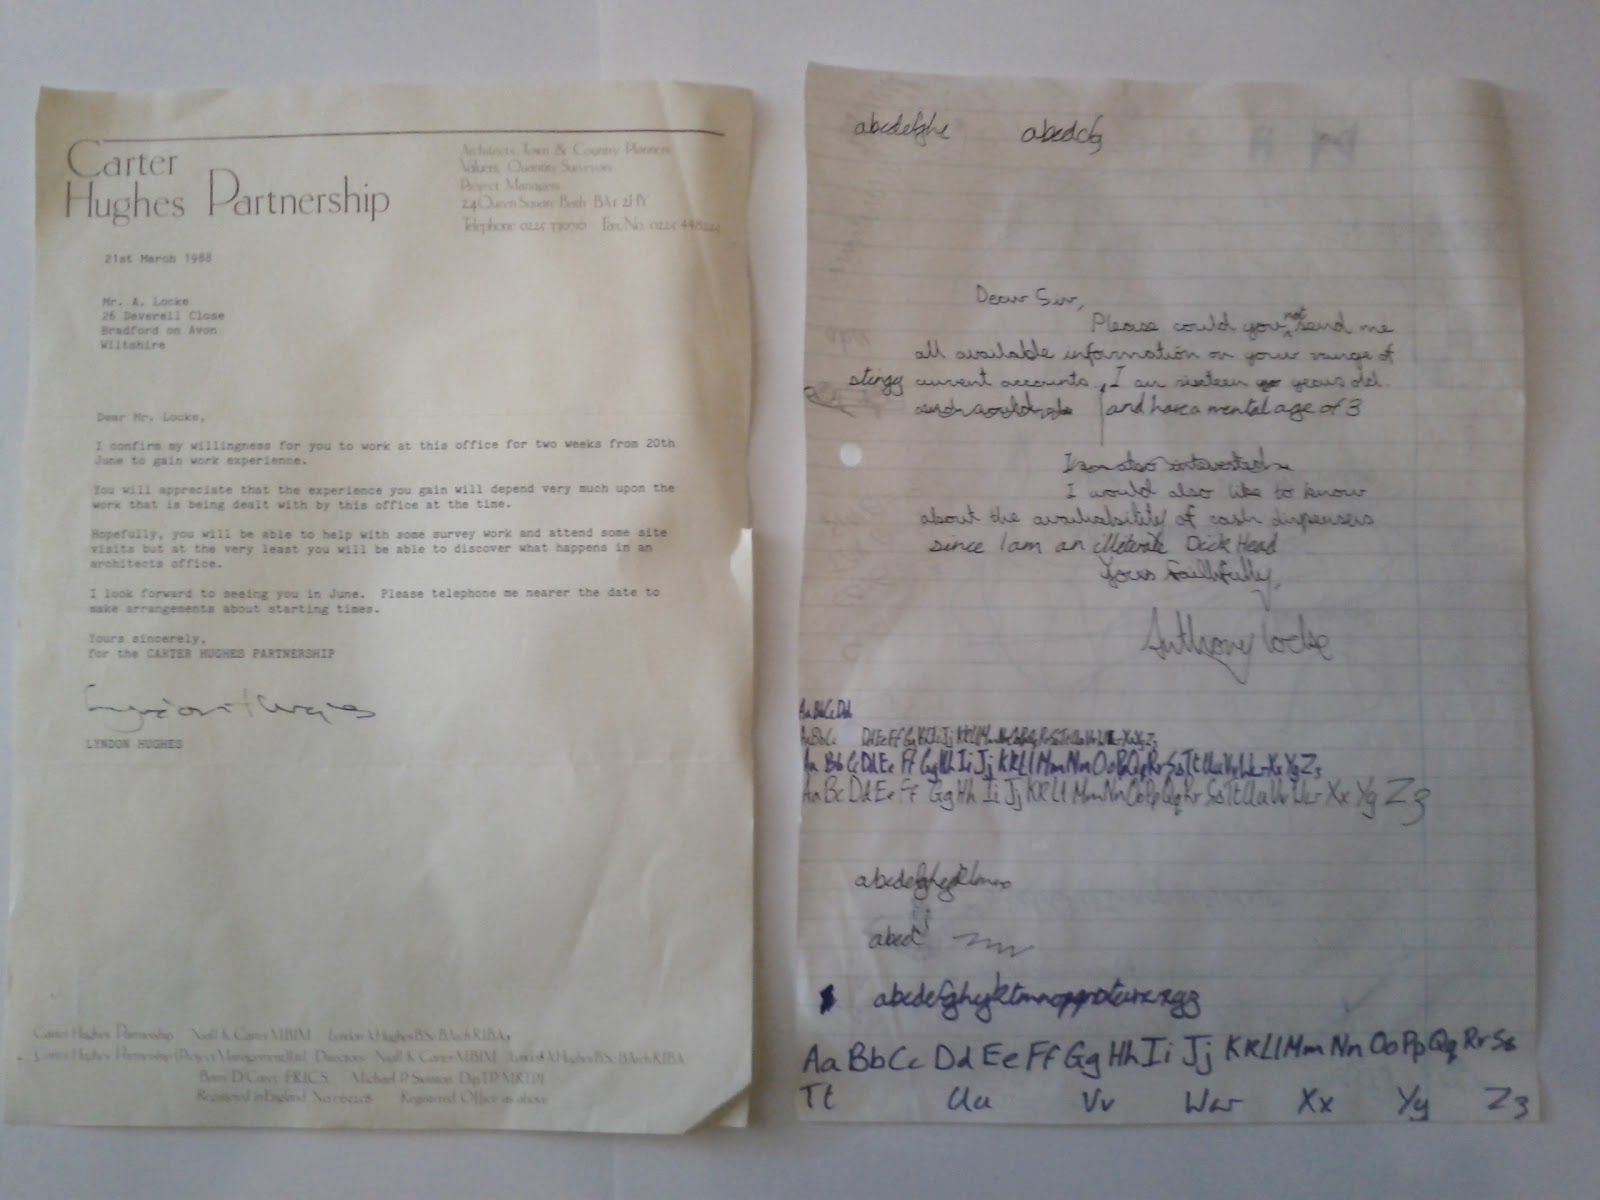 Carter
Hughes Partnership
Architects Town & Country Planners
Valuers Quantity Surveyors
Project Managers
24 Queen Square Bath BA1 2HY
Telephone 0225 Fax No. 0225
21st March 1988
Mr. A. Locke
26 Deverell Close
Bradford on Avon
Wiltshire
Dear Mr. Locke,
I confirm my willingness for you to work at this office for two weeks from 20th
June to gain work experience.
You will appreciate that the experience you gain will depend very much upon the
work that is being dealt with by this office at the time.
Hopefully, you will be able to help with some survey work and attend some site
visits but at the very least you will be able to discover what happens in an
architects office.
I look forward to seeing you in June. Please telephone me nearer the date to
make arrangements about starting times.
Yours sincerely,
for the CARTER HUGHES PARTNERSHIP
Lyndon Hughes
LYNDON HUGHES
Carter Hughes Partnership Niall & Carter MBIM Lyndon A Hughes BSc BArch RIBA
Carter Hughes Partnership (Project Management) Ltd Directors Niall & Carter MBIM Lyndon A Hughes BSc BArch RIBA
Barry D Carey FRICS Michael P Swinton Dip TP MRTPI
Registered in England No Registered Office as above
abcdefghi abcdefg
Dear Sir,
Please could you not send me
all available information on your range of
stingy current accounts, I am sixteen years old.
and would and have a mental age of 3
I am also interested in
I would also like to know
about the availability of cash dispensers
since I am an illiterate Dick Head
Yours faithfully,
Anthony Locke
Aa Bb Cc Dd
Aa Bb Cc Dd Ee Ff Gg Hh Ii Jj Kk Ll Mm Nn Oo Pp Qq Rr Ss Tt Uu Vv Ww Xx Yy Zz
Aa Bb Cc Dd Ee Ff Gg Hh Ii Jj Kk Ll Mm Nn Oo Pp Qq Rr Ss Tt Uu Vv Ww Xx Yy Zz
Aa Bc Dd Ee Ff Gg Hh Ii Jj Kk Ll Mm Nn Oo Pp Qq Rr Ss Tt Uu Vv Ww Xx Yy Zz
abcdefghijklmno
abcd
abcdefghijklmnopqrstuvwxyz
Aa Bb Cc Dd Ee Ff Gg Hh Ii Jj Kk Ll Mm Nn Oo Pp Qq Rr Ss
Tt Uu Vv Ww Xx Yy Zz